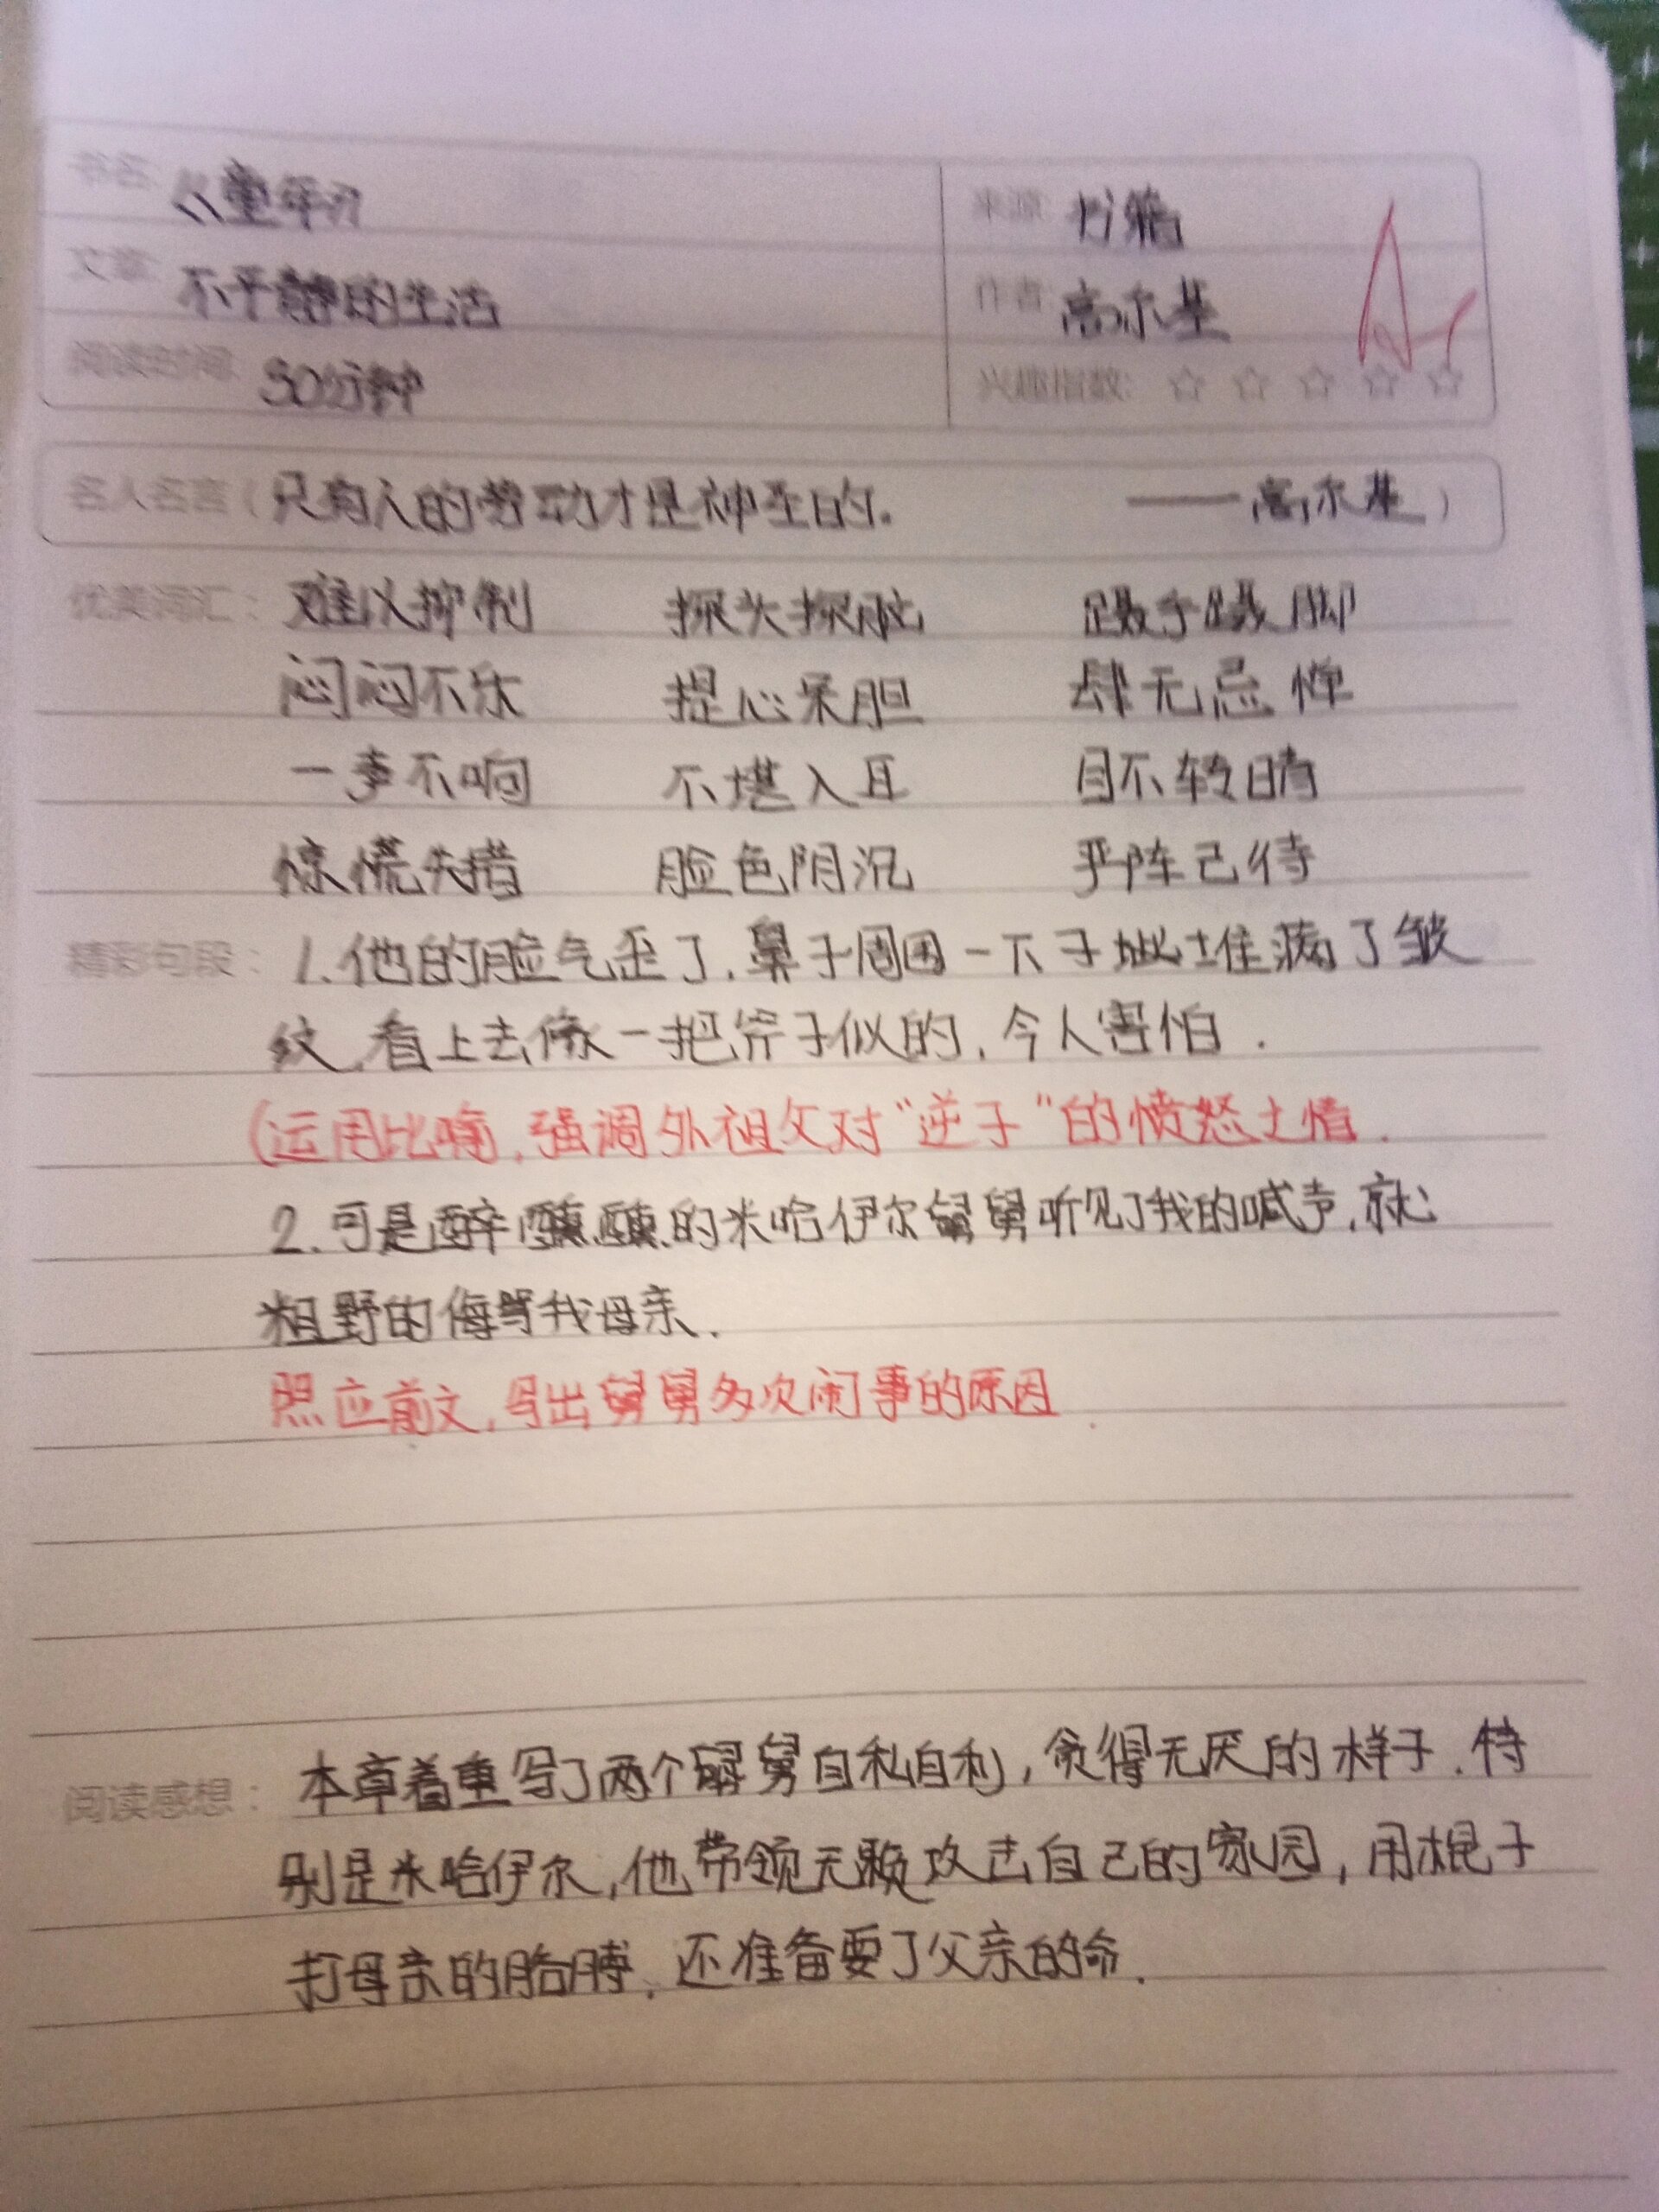 书名: 《童年》 来源: 书籍
文章: 不平静的生活 作者: 高尔基
阅读时间: 30分钟 兴趣指数: ☆ ☆ ☆ ☆ ☆
A-
名人名言(只有人的劳动才是神圣的. ——高尔基)
优美词汇: 难以抑制 探头探脑 蹑手蹑脚
闷闷不乐 提心吊胆 肆无忌惮
一声不响 不堪入耳 目不转睛
惊慌失措 脸色阴沉 严阵已待
精彩句段: 1.他的脸气歪了,鼻子周围一下子堆满了皱
纹,看上去像一把斧子似的,令人害怕.
(运用比喻,强调外祖父对“逆子”的愤怒之情.
2.可是醉醺醺的米哈伊尔舅舅听见了我的喊声,就
粗野的侮骂我母亲.
照应前文,写出舅舅多次闹事的原因
阅读感想: 本章着重写了两个舅舅自私自利,贪得无厌的样子.特
别是米哈伊尔,他带领无赖攻击自己的家园,用棍子
打母亲的胳膊,还准备要了父亲的命.